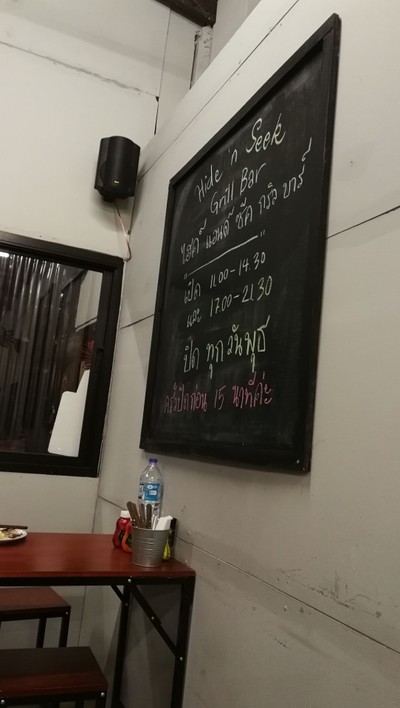 Hide 'n Seek
Grill Bar
ไฮด์ แอนด์ ซีค กริล บาร์
เปิด 11.00-14.30
และ 17.00-21.30
ปิด ทุกวันพุธ
ครัวปิดก่อน 15 นาทีค่ะ